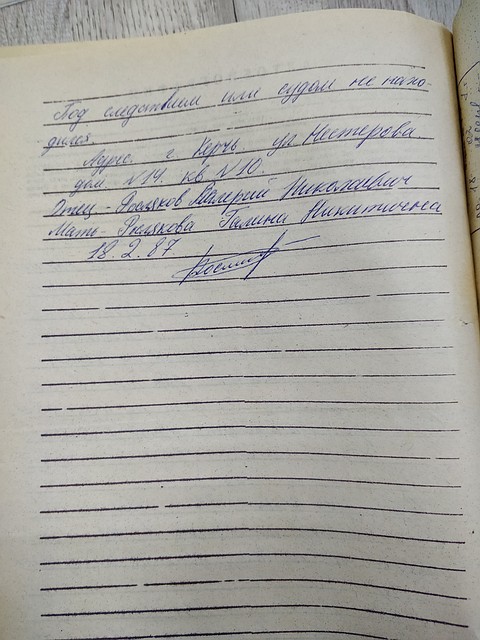 Под следствием или судом не нахо-
дился.
Адрес. г. Керчь ул Нестерова.
дом. N14. кв N10.
Отец - Валерий Николаевич
Мать - Галина Никитична
18.2.87.